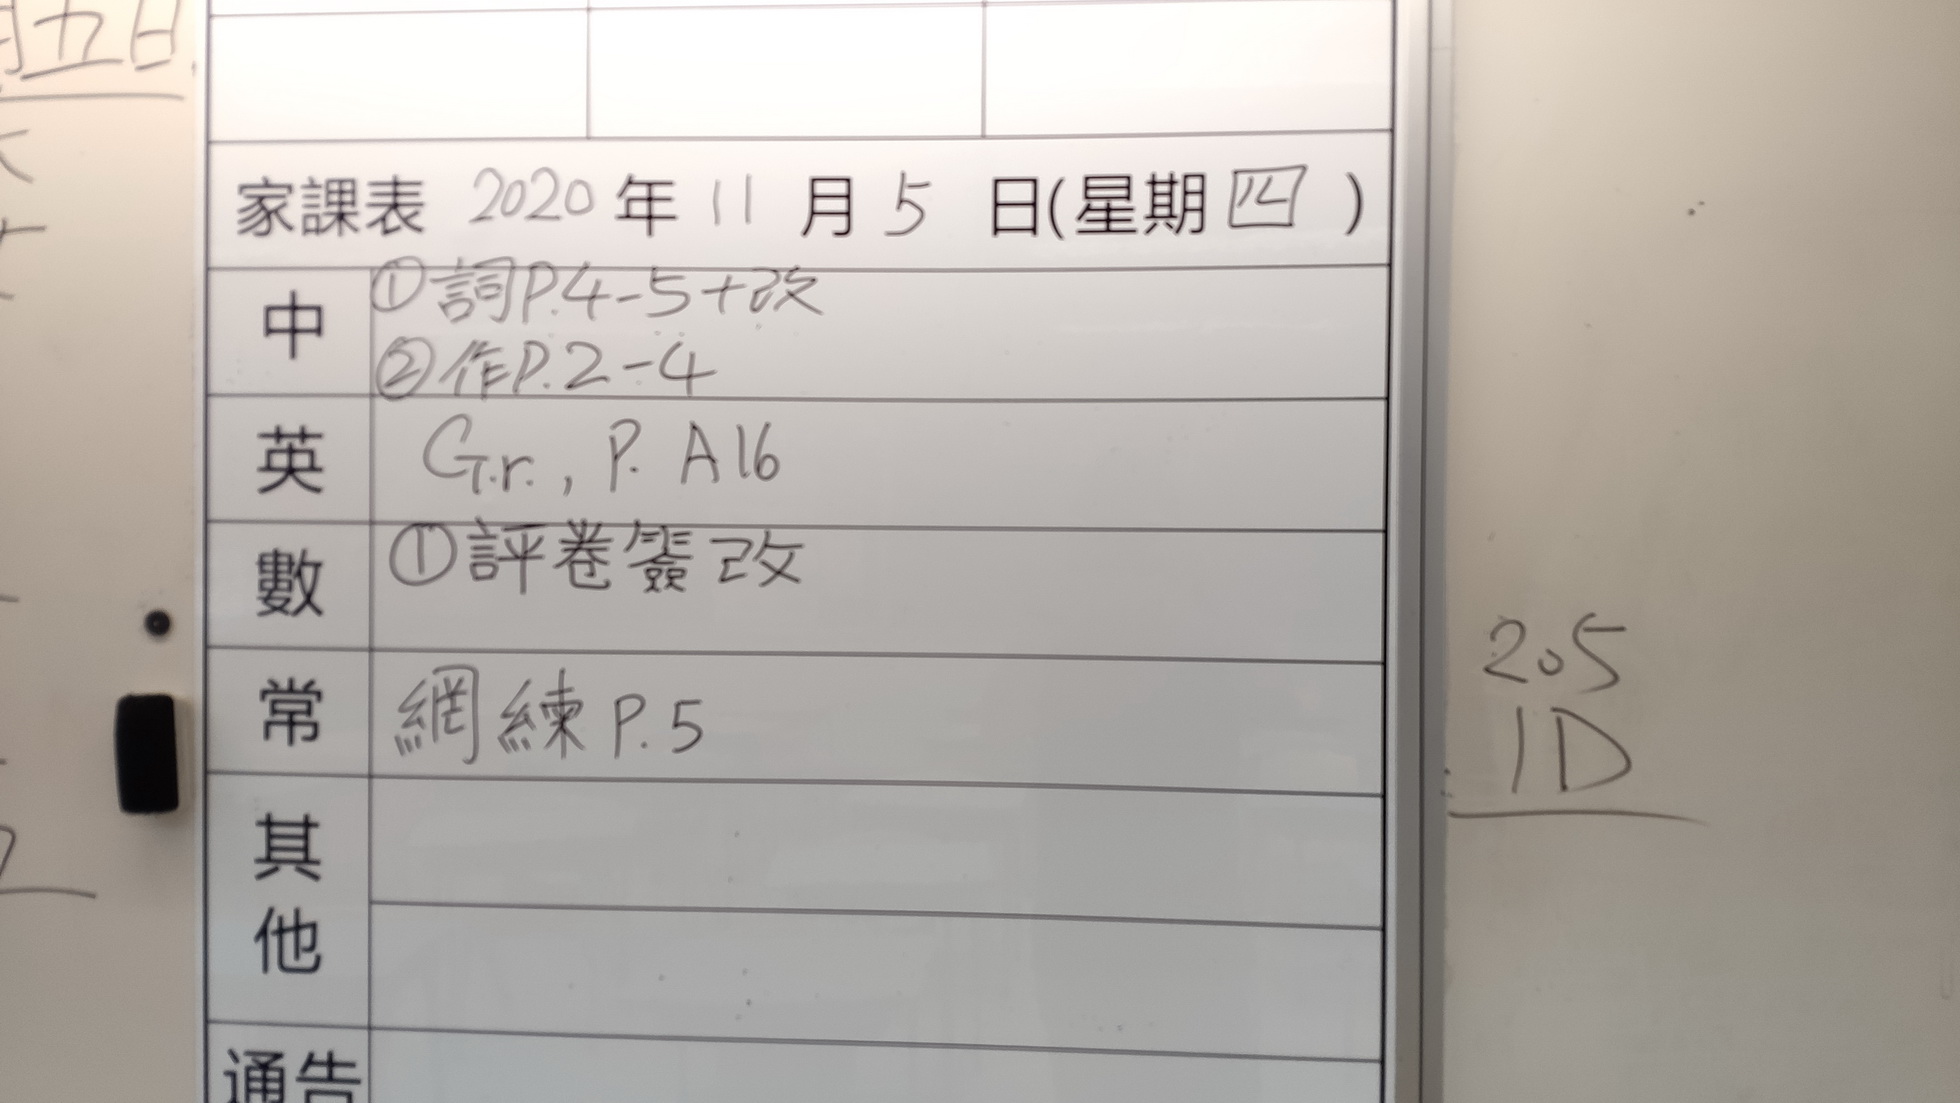 月五日
家課表 2020 年 11 月 5 日(星期 四 )
中 ①詞P.4-5+改
②作P.2-4
英 G.r., P. A16
數 ①評卷簽改
常 網練 P.5
其他
通告
205
1D